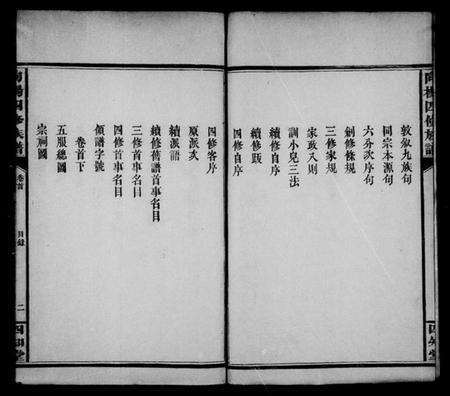 南楊四修族譜
敦叙九族句
同宗本源句
六分次序句
創修條規
三修家規
家政八則
訓小兒三法
續修自序
續修跋
四修自序
四修客序
原派次
續派語
續修舊譜首事名目
三修首事名目
四修首事名目
領譜字號
卷首下
五服總圖
宗祠圖
南楊四修族譜
卷首
目錄
二
四知堂
四知堂